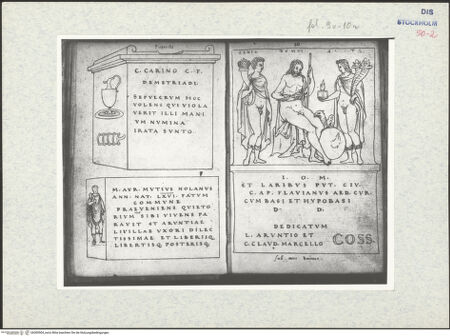 DIS
STOCKHOLM
50-2
fol. 9v-10r
C. CARINO C. F.
DEMETRIADI.
SEPVLCRVM HOC
VOLENS QVI VIOLA
VERIT ILLI MANI
VM NVMINA
IRATA SVNTO.
M. AVR. MVTIVS NOLANVS
ANN. NAT. LXVI. FATVM
COMMVNE
PRAEVENIENS QVIETO
RIVM SIBI VIVENS PA
RAVIT ET ARVNTIAE
LIVILLAE VXORI DILEC
TISSIMAE ET LIBERISQ.
LIBERTISQ. POSTERISQ.
I. O. M.
ET LARIBVS PVT. CIV.
C. AP. FLAVIANVS AED. CVR.
CVM BASI ET HYPOBASI
D. D.
DEDICATVM
L. ARVNTIO ET
C. CLAVD. MARCELLO
COSS